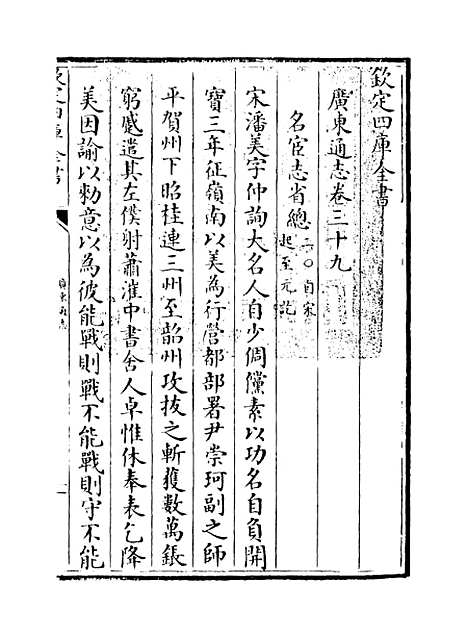 欽定四庫全書
廣東通志卷三十九
名宦志省總二〇自宋起至元訖
宋潘美字仲詢大名人自少倜儻素以功名自負開
寶三年征嶺南以美為行營都部署尹崇珂副之師
平賀州下昭桂連三州至韶州攻拔之斬獲數萬鋹
窮蹙遣其左僕射蕭漼中書舍人卓惟休奉表乞降
美因諭以勑意以為彼能戰則戰不能戰則守不能
欽定四庫全書
廣東通志
一